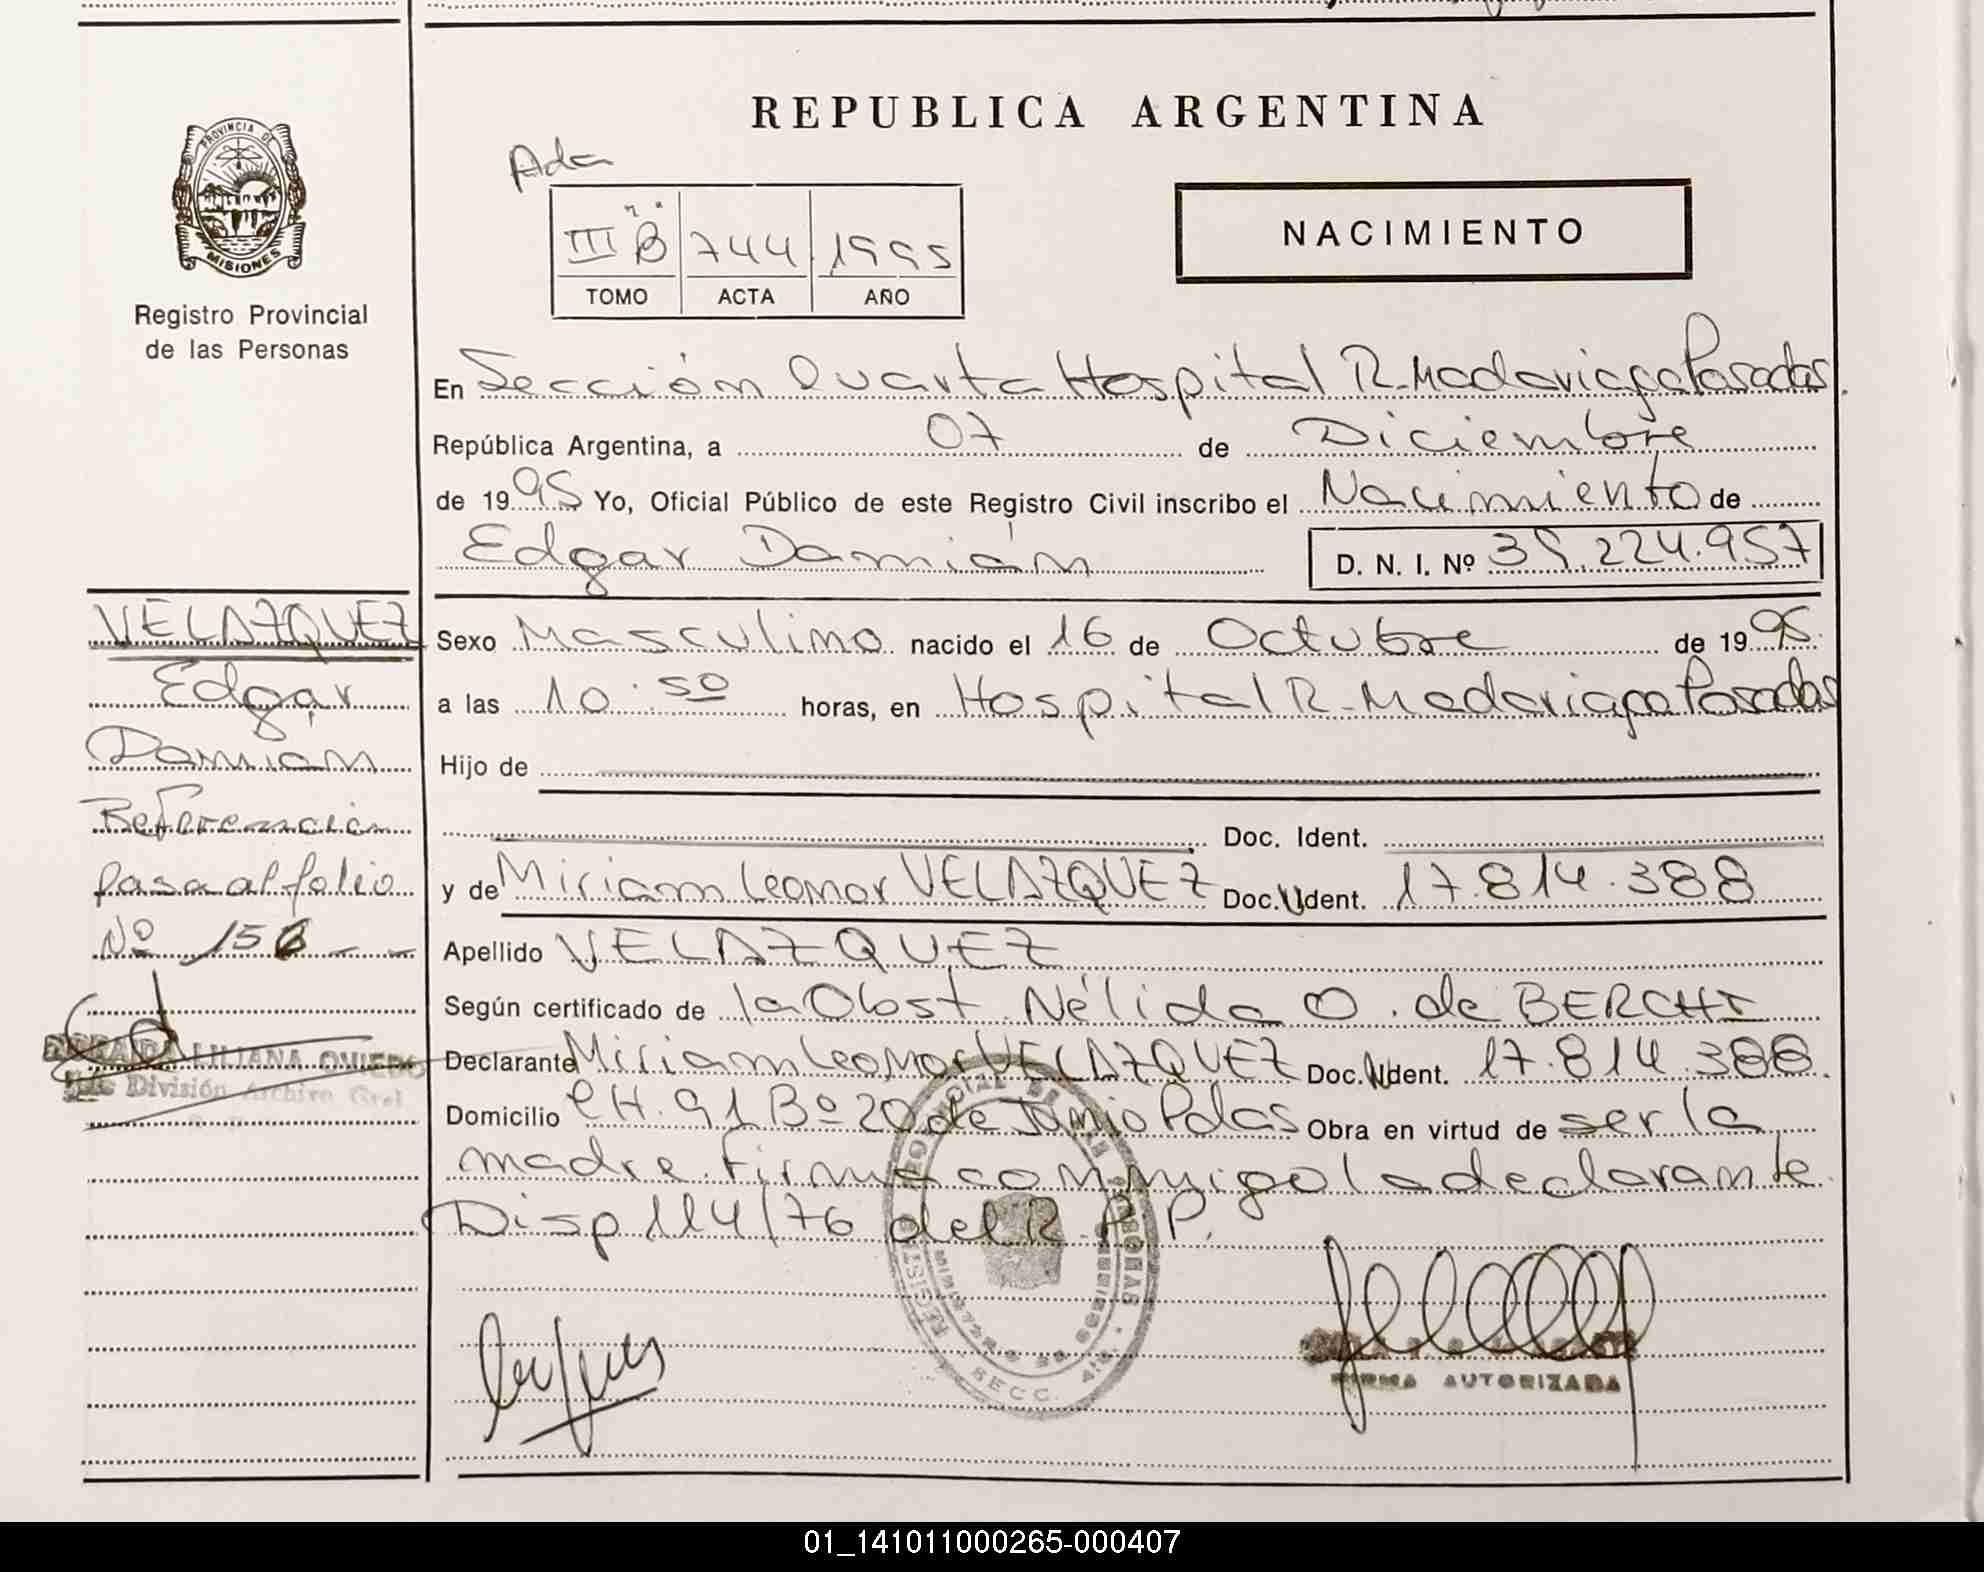 REPUBLICA ARGENTINA
PROVINCIA DE
MISIONES
Registro Provincial
de las Personas
Ada
III "B" 744 1995
TOMO ACTA AÑO
NACIMIENTO
En Sección Cuarta Hospital R. Madariaga Posadas
República Argentina, a 07 de Diciembre
de 1995 Yo, Oficial Público de este Registro Civil inscribo el Nacimiento de
Edgar Damián D. N. I. Nº 39.224.957
Sexo Masculino nacido el 16 de Octubre de 1995
a las 10:50 horas, en Hospital R. Madariaga Posadas
Hijo de
Doc. Ident.
y de Miriam Leonor VELAZQUEZ Doc. Ident. 17.814.388
Apellido VELAZQUEZ
Según certificado de la Obst. Nélida O. de BERCHI
Declarante Miriam Leonor VELAZQUEZ Doc. Ident. 17.814.388
Domicilio CH. 91 Bº 20 de Junio Pdas Obra en virtud de ser la
madre. Firma conmigo la declarante
Disp 114/76 del R. P. P.
VELAZQUEZ
Edgar
Damián
Referenciación
pasa al folio
Nº 156
LILIANA OVIEDO
División Archivo Gral
SECC. 4ta.
FIRMA AUTORIZADA
01_141011000265-000407